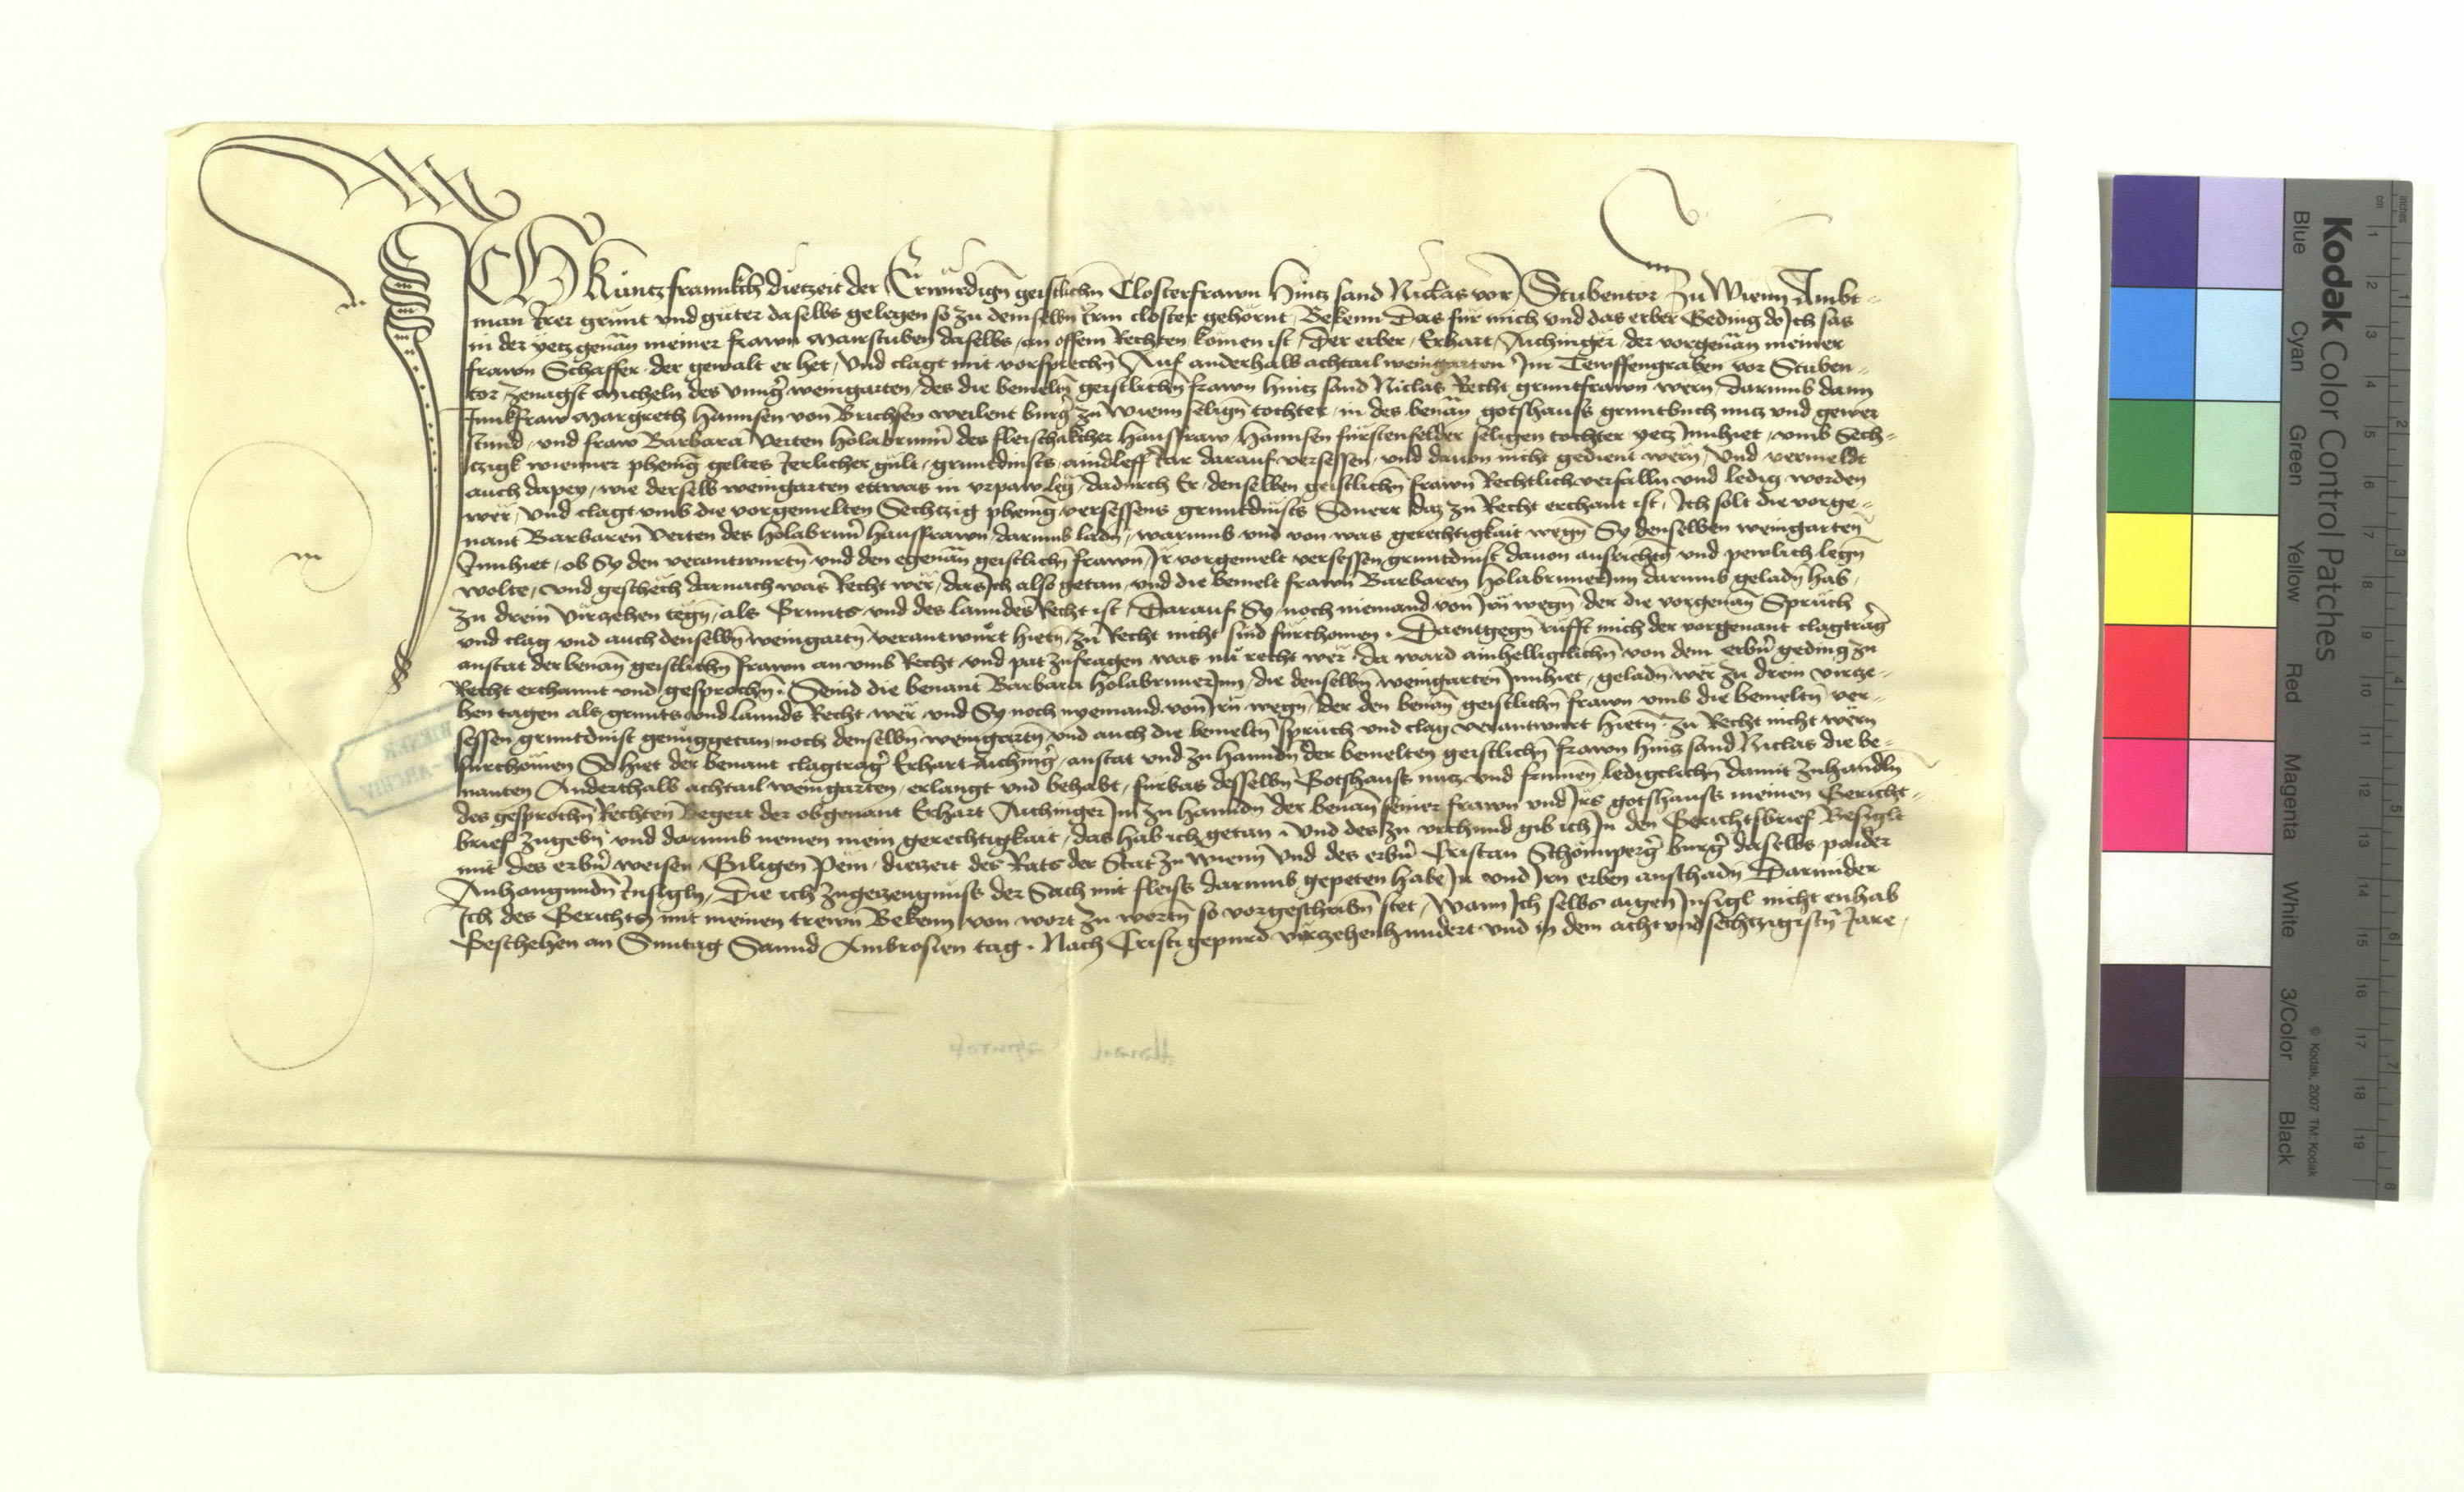 ICH Kuntz frannkch dietzeit der Erwirdigñ geistlichñ Closterfrawn hintz sand Niclas vor Stubentor zu Wienn Ambt-
man Irer grünt vnd güter daselbs gelegen so zu demselbñ Irm closter gehörnt, Bekenn Das für mich vnd das erber Geding do Ich sas
in der yetz genañ meiner frawn Mairstuben daselbs, an offem Rechten komen ist, Der erber, Erhart Aichinger, der vorgenañ meiner
frawn Schaffer, der gewalt er het, Vnd clagt mit vorsprechñ Auf anderhalb achtail weingarten Im Tewffengraben vor Stuben-
tor, zenagst Micheln des weingarten, des die bemeltñ geistlichñ frawn hintz sand Niclas Recht gruntfrawn wern, darumb dann
Junkfraw Margreth Hannsen von Brichsen weilent burg̃ zu Wienn seligñ tochter, in des benañ gotshauss gruntbuch nutz vnd gewer
stund, vnd fraw Barbara Verten Holabrunñ des fleischakcher hausfraw, Hannsen fürstenfelder seligen tochter yetz Innhiet, vmb Sech-
tzigk wienner phenig̃ geltes Jerlicher gült, gruntdinsts, aindleff Iar darauf versessen, vnd dauon nicht gedient wern, Vnd vermeldt
auch dapey, wie derselb weingarten ettwas in vrpaw leg̃, dadurch Er denselben geistlichñ frawñ Rechtlich verfallñ vnd ledig worden
wër, Vnd clagt vmb die vorgemelten Sechtzig phenig̃ versessens gruntdinsts Souerr daz zu Recht erchant ist, Ich solt die vorge-
nant Barbaren Verten des Holabrunñ hausfrawn, darumb ladñ, warumb vnd von was gerechtigkait wegñ Sy denselben weingarten
Innhiet, ob Sy den verantwurtñ vnd den egenañ geistlichñ frawñ, Ir vorgemelt versessen gruntdinst dauon ausrichtñ vnd pewlich legñ
wolte, vnd geschëch darnach was Recht wër, das Ich also getan, vnd die bemelt frawñ Barbaren Holabrunerinn darumb geladñ hab,
zu drein virzehen tëgñ, als Grunts vnd des lanndes Recht ist, Darauf Sy noch niemand von Irñ wegñ der die vorgenañ Sprüch
vnd clag vnd auch denselbñ weingartñ verantwurt hietñ, zu Recht nicht sind fürchomen. Daentgegñ rüfft mich der vorgenant clagtrag̃
anstat der benañ geistlichñ frawn an vmb Recht vnd pat zufragen was nu recht wër, Da ward ainhelligclichñ von dem erbñ geding zu
Recht erchannt vnd gesprochñ. Seind die benant Barbara Holabrunerinn, die denselbñ weingarten Innhiet, geladñ wër zu drein virze-
hen tagen als grunts vnd lannds Recht wër, vnd Sy noch nyemand von Irñ wegñ, der den benañ geistlichñ frawn vmb die bemeltñ ver-
sessen gruntdinst genuggetan, noch denselbñ weingartñ vnd auch die bemeltñ sprüch vnd clag verantwurt hietñ, zu Recht nicht wërn
fürchomen So hiet der benant clagtrag̃ Erhart Aiching̃, anstat vnd zu hanndñ der bemelten geistlichñ frawn hintz sand Niclas die be-
nanten Anderthalb achtail weingarten, erlangt vnd behabt, fürbas desselbñ Gotshauss nutz vnd frumen ledigclichñ damit zuhandln
des gesprochñ Rechten Begert der obgenant Erhart Aichinger Im zu hanndñ der benañ seiner frawn vnd Irs gotshauss meinen Gericht-
brief zugebñ vnd darumb nemen mein gerechtigkait, das hab ich getan. Vnd des zu vrchund gib ich In den Gerichtsbrief Besiglt
mit des erbñ weisen, Giligen Pëm, dietzeit des Rats der Stat zu Wienn Vnd des erbñ Cristan Schönnperg̃ burg̃ daselbs paider
Anhangundñ Insigln, Die ich zugeezeugnuss der Sach mit fleiss darumb gepeten habe In vnd Irñ erben anschadñ Darunder
Ich des Gerichts mit meinen trewñ Bekenn von wort zu wortñ so vorgeschribñ stet, Wann Ich selbs aigen Insigl nicht enhab
Geschehen an Sunntag Sannd Ambrosien tag. Nach Cristi gepurd virzehenhundert vnd in dem acht vnd sechtzigistñ Jare,
Kodak Color Control Patches
© Kodak, 2007 TM: Kodak
Blue Cyan Green Yellow Red Magenta White 3/Color Black
inches 1 2 3 4 5 6 7 8
cm 1 2 3 4 5 6 7 8 9 10 11 12 13 14 15 16 17 18 19